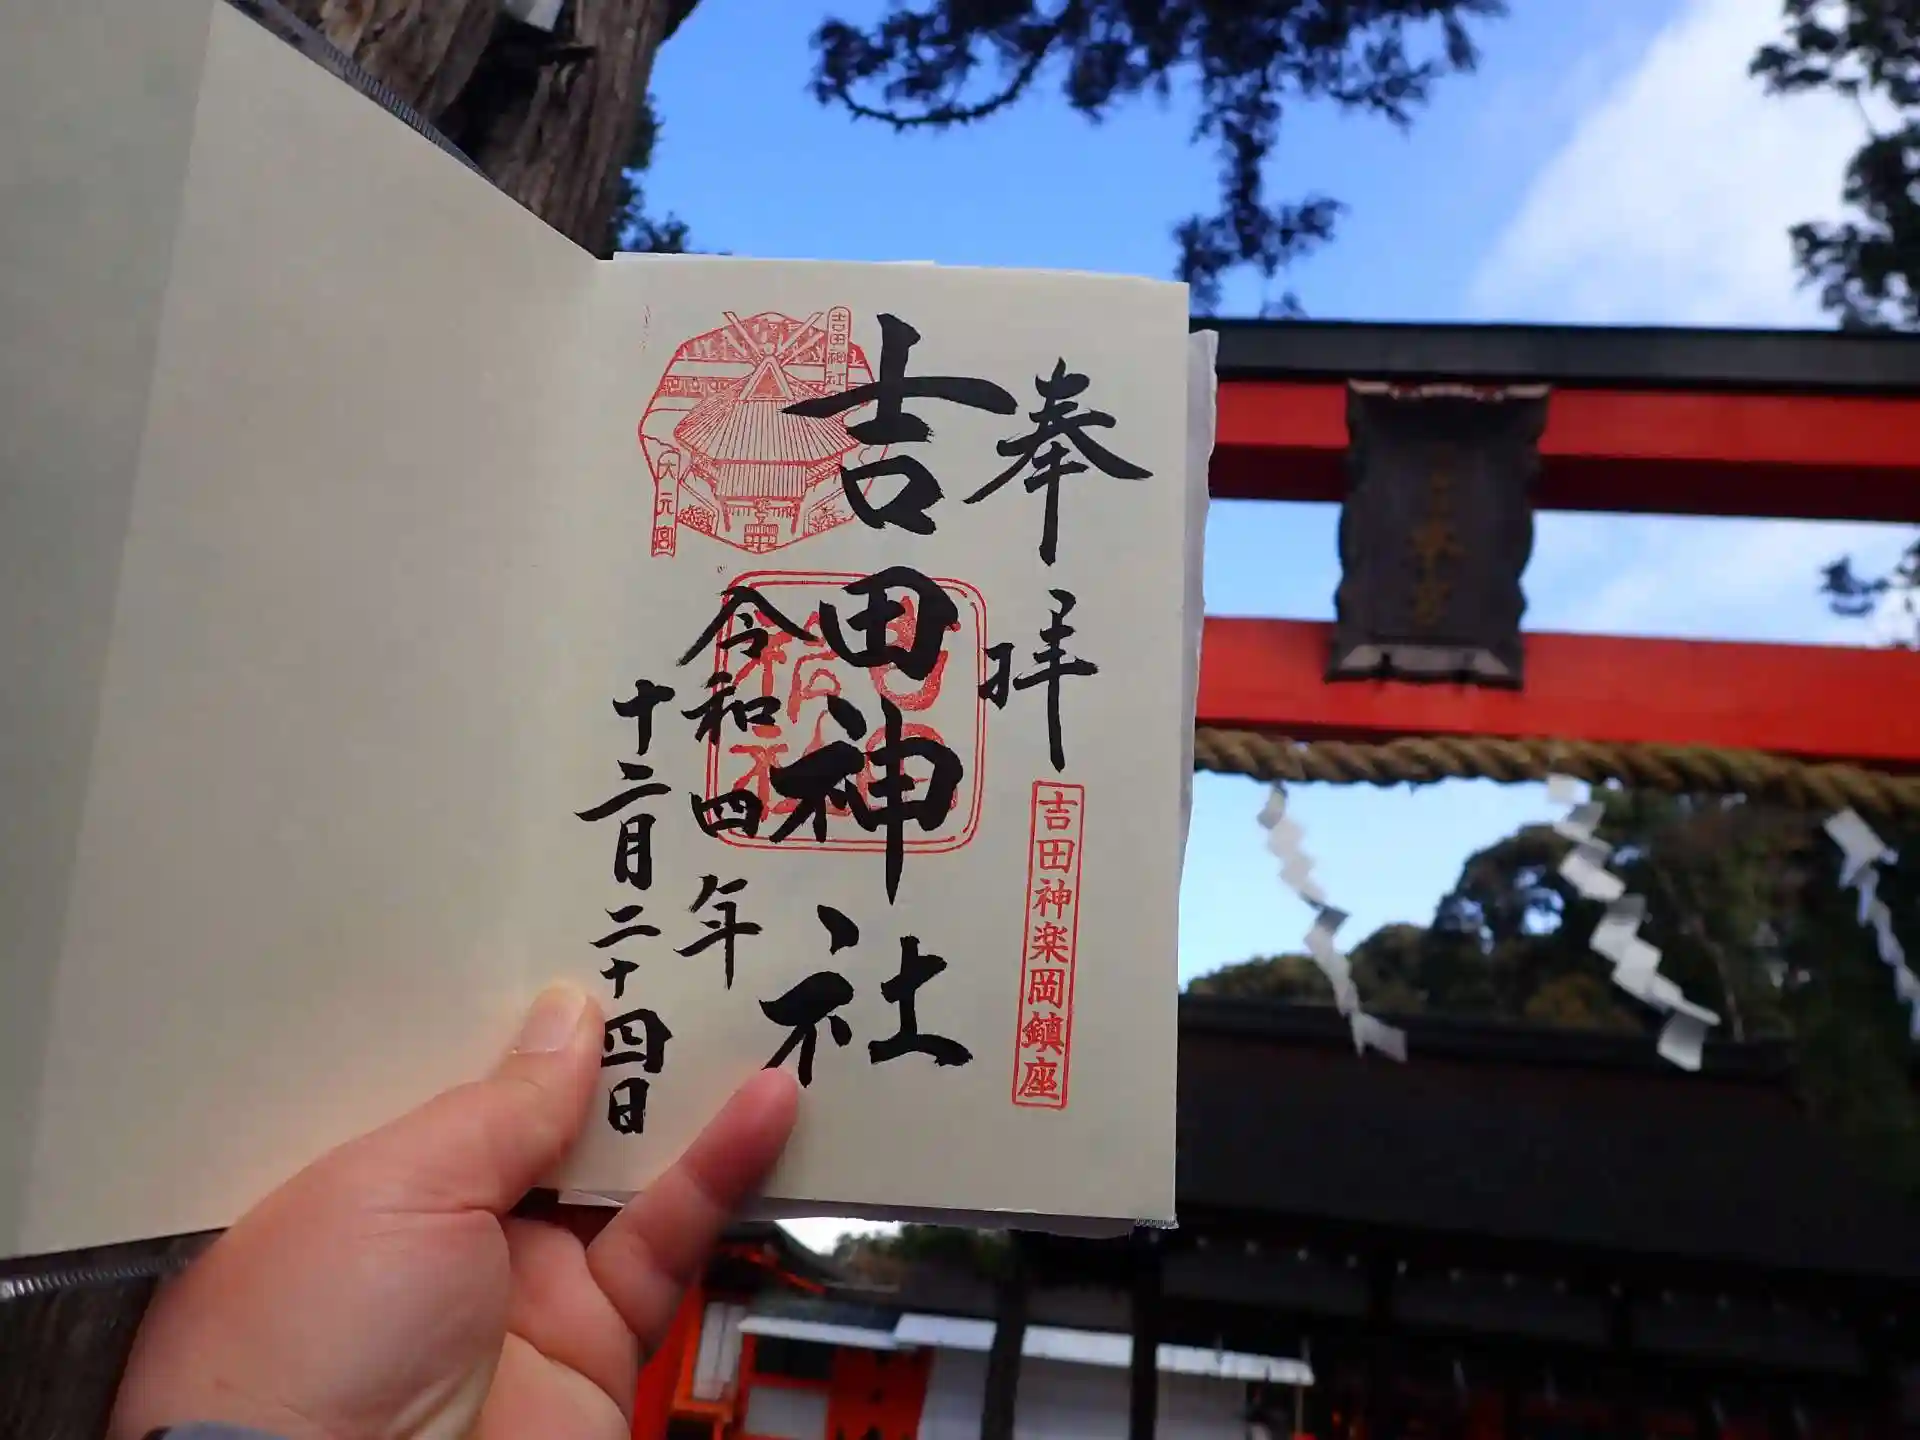 奉拝
吉田神楽岡鎮座
吉田神社
吉田神社
大元宮
令和四年
十二月二十四日